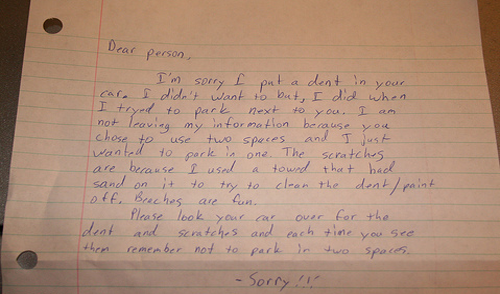 Dear person,
I'm sorry I put a dent in your
car. I didn't want to but, I did when
I tryed to park next to you. I am
not leaving my information because you
chose to use two spaces and I just
wanted to park in one. The scratches
are because I used a towel that had
sand on it to try to clean the dent/paint
off. Beaches are fun.
Please look your car over for the
dent and scratches and each time you see
them remember not to park in two spaces.
-Sorry!!!